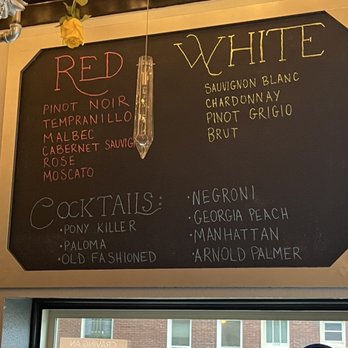 RED
PINOT NOIR
TEMPRANILLO
MALBEC
CABERNET SAUVIG
ROSE
MOSCATO
WHITE
SAUVIGNON BLANC
CHARDONNAY
PINOT GRIGIO
BRUT
COCKTAILS:
• PONY KILLER
• PALOMA
• OLD FASHIONED
• NEGRONI
• GEORGIA PEACH
• MANHATTAN
• ARNOLD PALMER
CRAVING AN